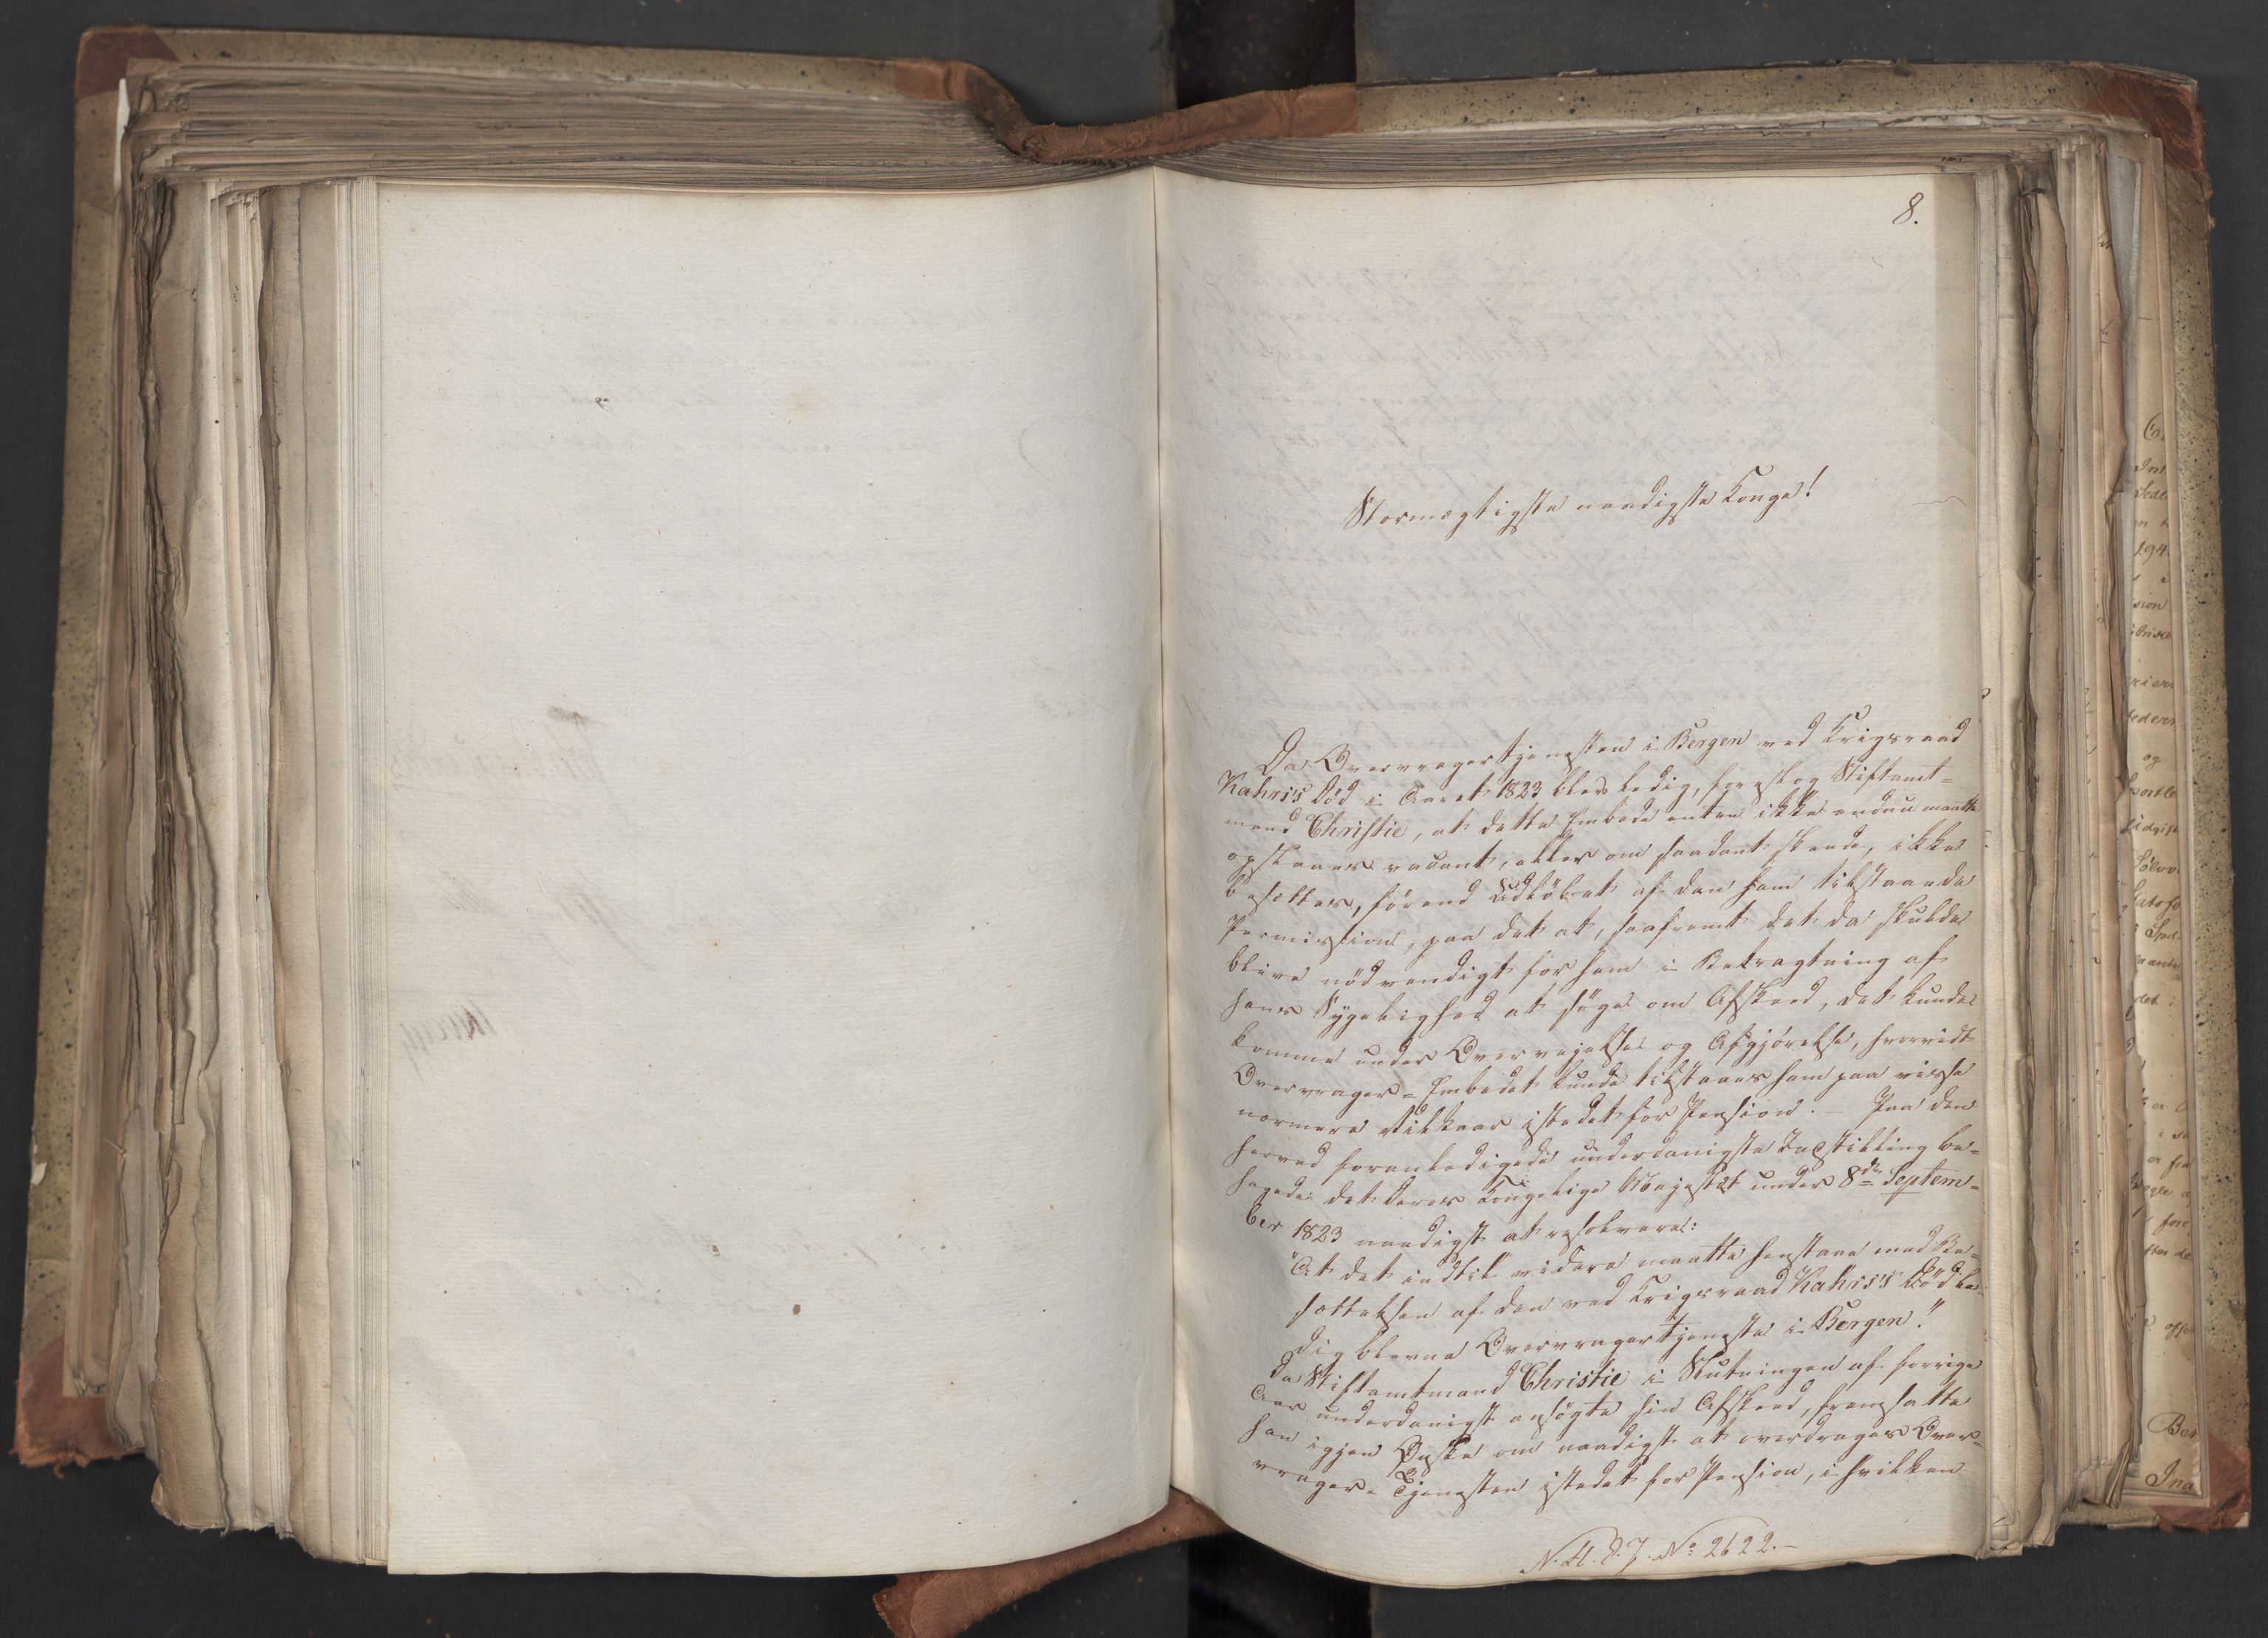 8.
Stormægtigste naadigste Konge!
Da Overvragertjenesten i Bergen ved Krigsraad
Kahrs's Død i Aaret 1823 blev ledig, foreslog Stiftamt=
mand Christie, at dette Embede enten ikke endnu maatte
opslaaes vacant, eller om saadant skeede, ikke
besættes, förend Udløbet af den ham tilstaaede
Permission, paa det at, saafremt det da skulde
blive nödvendigt for ham i Betragtning af
hans Sygelighed at söge om Afskeed, det kunde
komme under Overveielse og Afgjörelse, hvorvidt
Overvrager=Embedet kunde tilstaaes ham paa visse
nærmere Vilkaar istedet for Pension. – Paa den
herved foranledigede underdanigste Indstilling be=
hagede det Deres Kongelige Majestæt under 8de Septem=
ber 1823 naadigst at resolvere:
"At det indtil videre maatte henstaae med Be=
sættelsen af den ved Krigsraad Kahrs's Död le
dig blevne Overvragertjeneste i Bergen."
Da Stiftamtmand Christie i Slutningen af forrige
Aar underdanigst ansögte sin Afskeed, fremsatte
han igjen Ønske om naadigst at overdrages Over=
vrager=Tjenesten istedet for Pension, i hvilken
No 2622.–